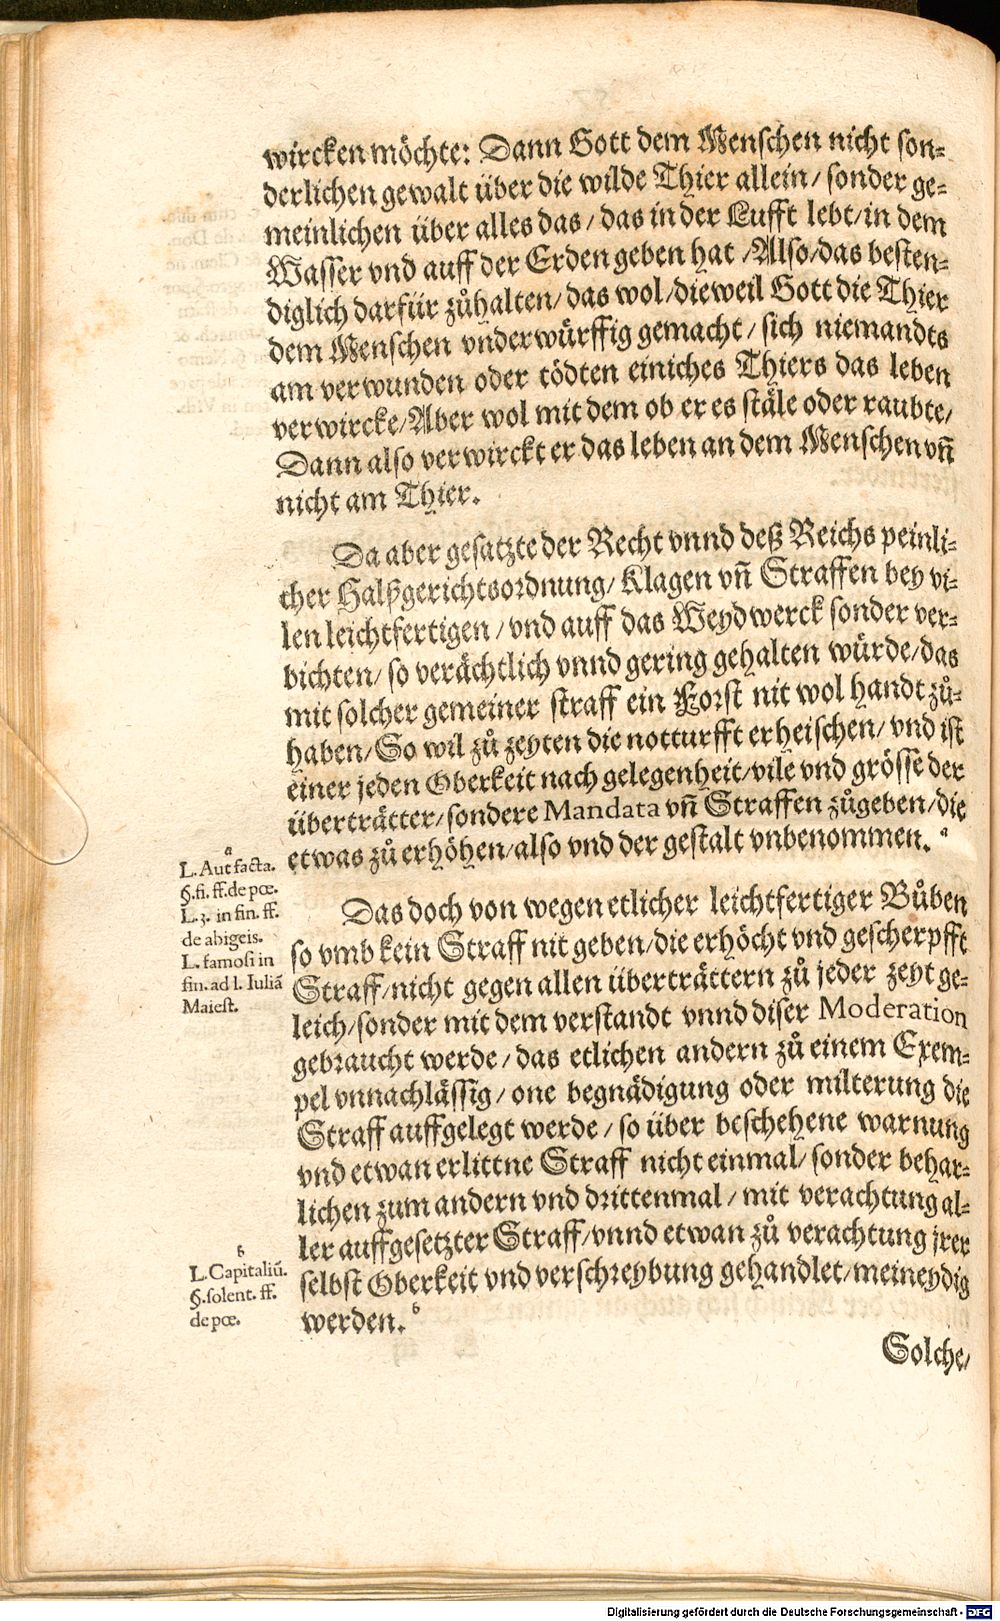 wircken möchte: Dann Gott dem Menschen nicht son⸗
derlichen gewalt über die wilde Thier allein/ sonder ge⸗
meinlichen über alles das/ das in der Lufft lebt/ in dem
Wasser vnd auff der Erden geben hat/ Also/ das besten⸗
diglich darfür zůhalten/ das wol/ dieweil Gott die Thier
dem Menschen vnderwürffig gemacht/ sich niemandts
am verwunden oder tödten einiches Thiers das leben
verwircke/ Aber wol mit dem ob er es stäle oder raubte/
Dann also verwirckt er das leben an dem Menschen vñ
nicht am Thier.
Da aber gesatzte der Recht vnnd deß Reichs peinli⸗
cher Halßgerichtsordnung/ Klagen vñ Straffen bey vi⸗
len leichtfertigen/ vnd auff das Weydwerck sonder ver⸗
bichten/ so verächtlich vnnd gering gehalten würde/ das
mit solcher gemeiner straff ein Forst nit wol handt zů⸗
haben/ So wil zů zeyten die notturfft erheischen/ vnd ist
einer jeden Oberkeit nach gelegenheit/ vile vnd grösse der
überträtter/ sondere Mandata vñ Straffen zůgeben/ die
etwas zů erhöhen/ also vnd der gestalt vnbenommen. a
a
L. Aut facta.
§. fi. ff. de pœ.
L. 3. in fin. ff.
de abigeis.
L. famosi in
fin. ad l. Iuliã
Maiest.
Das doch von wegen etlicher leichtfertiger Bůben
so vmb kein Straff nit geben/ die erhöcht vnd gescherpfft
Straff/ nicht gegen allen überträttern zů jeder zeyt ge⸗
leich/ sonder mit dem verstandt vnnd diser Moderation
gebraucht werde/ das etlichen andern zů einem Exem⸗
pel vnnachlässig/ one begnädigung oder milterung die
Straff auffgelegt werde/ so über beschehene warnung
vnd etwan erlittne Straff nicht einmal/ sonder behar⸗
lichen zum andern vnd drittenmal/ mit verachtung al⸗
ler auffgesetzter Straff/ vnnd etwan zů verachtung jrer
selbst Oberkeit vnd verschreybung gehandlet/ meineydig
werden. b
b
L. Capitaliũ.
§. solent. ff.
de pœ.
Solche/
Digitalisierung gefördert durch die Deutsche Forschungsgemeinschaft - DFG